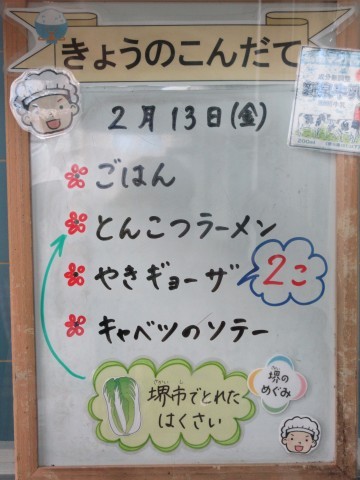 きょうのこんだて
2月13日(金)
ごはん
とんこつラーメン
やきギョーザ 2こ
キャベツのソテー
堺市でとれた
はくさい
堺の
めぐみ